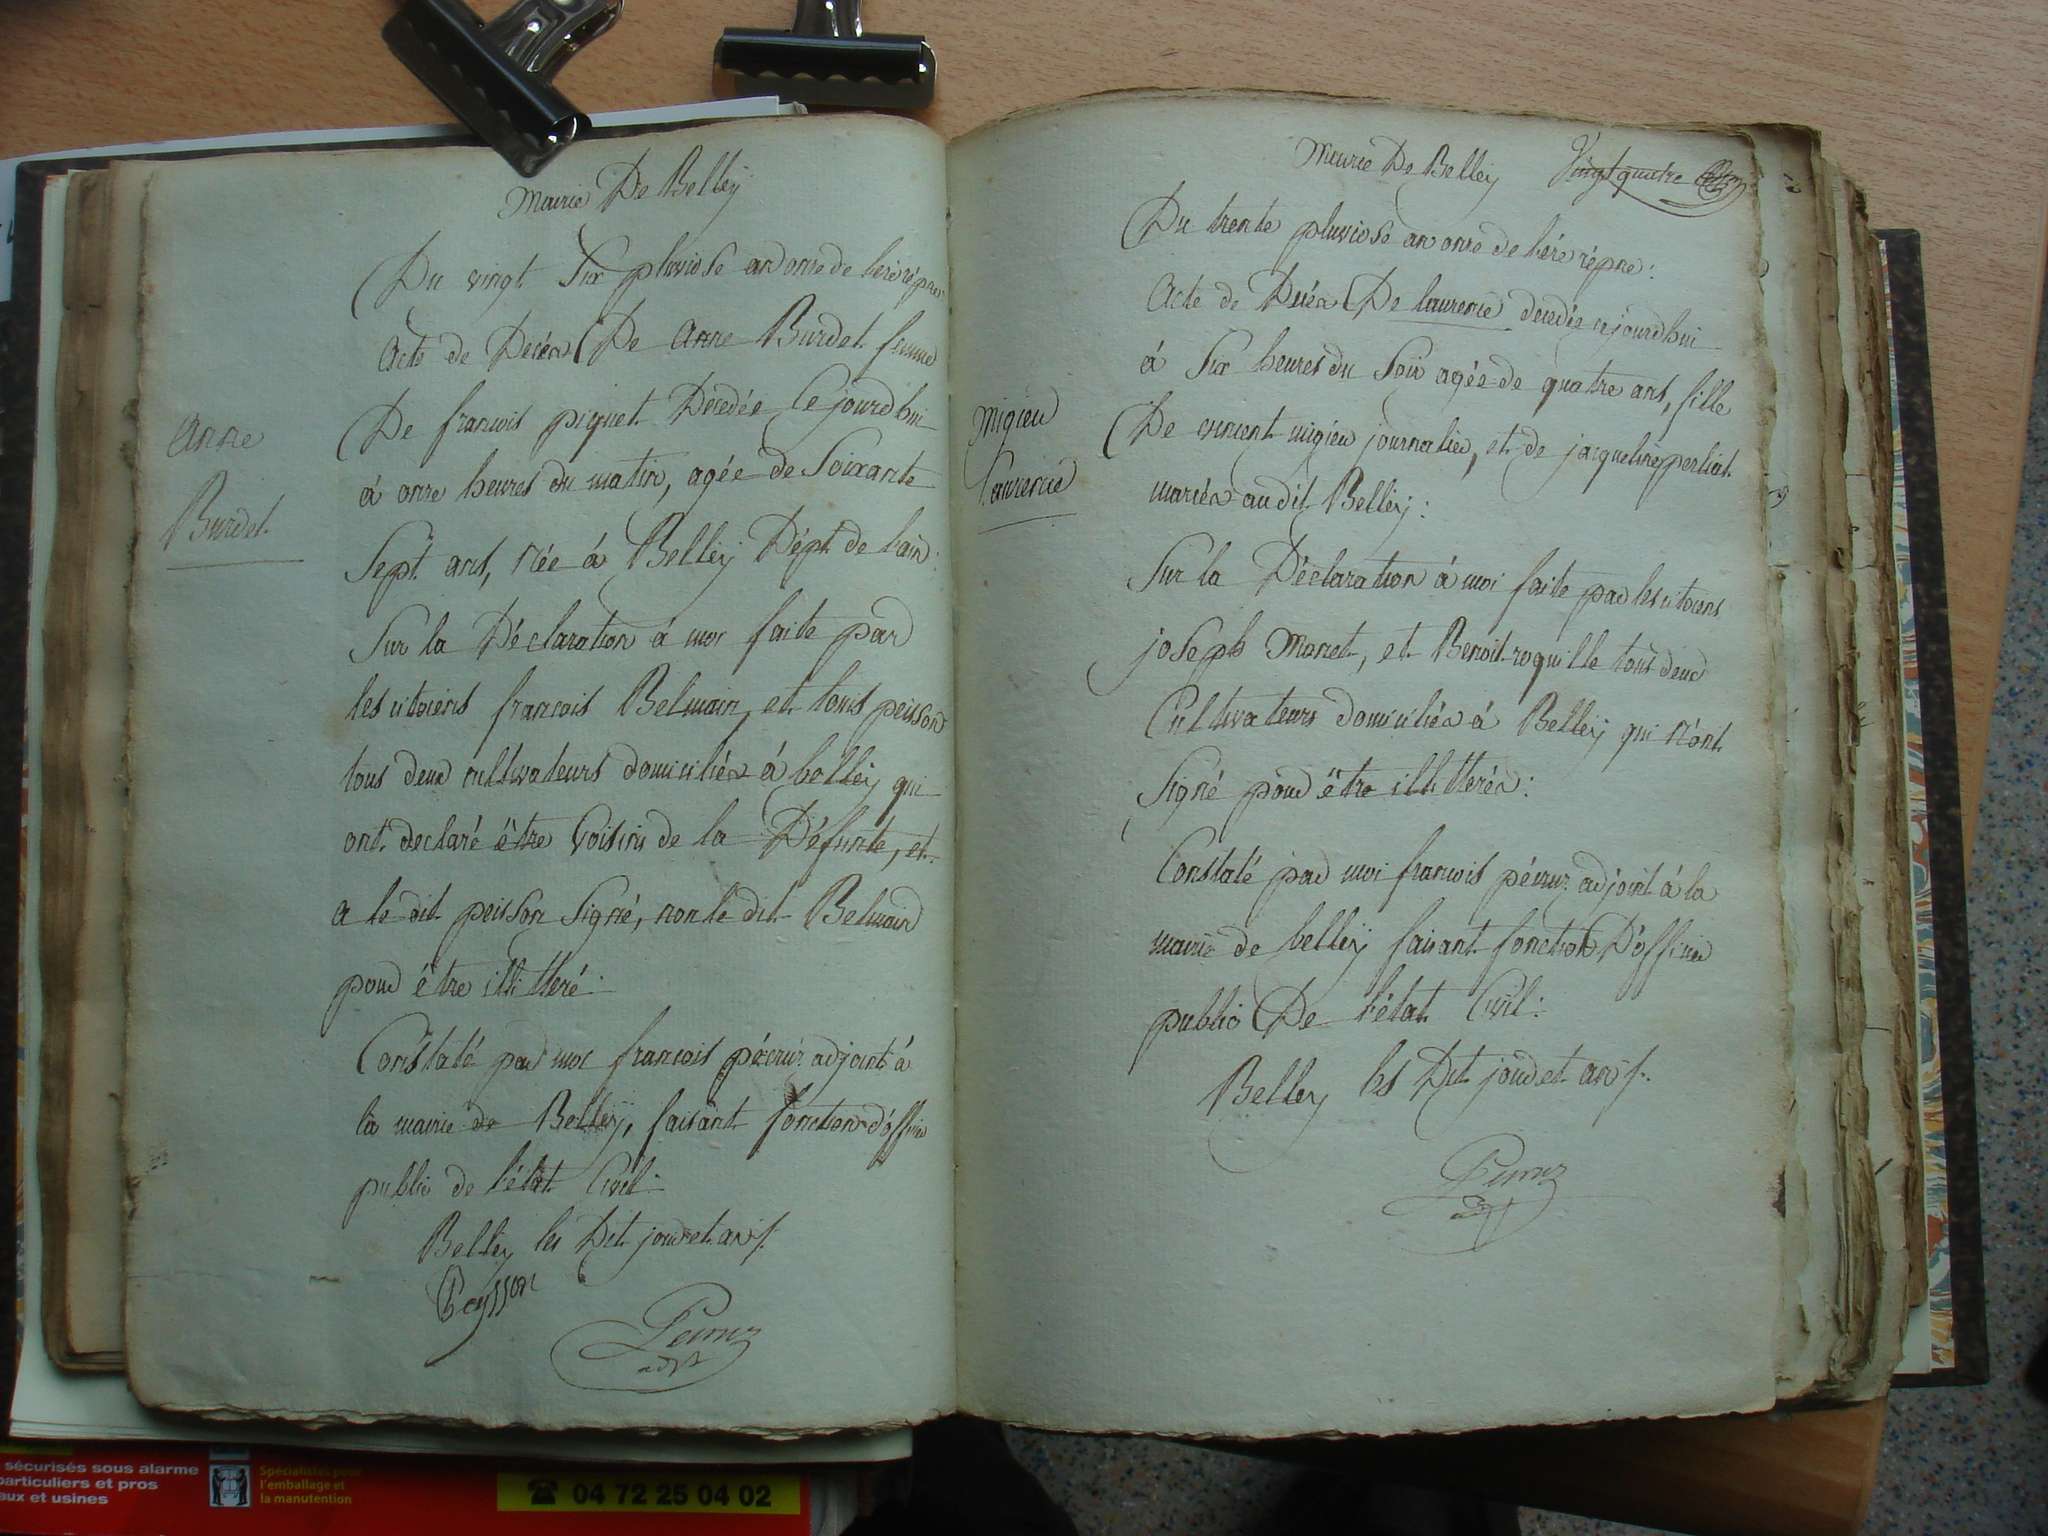 Mairie De Belleÿ
Du vingt Six pluviose an onze de l'ere répne
Acte de Decés De Anne Burdet femme
De francois piquet Decedée Cejourdhui
á onze heures du matin, agée de Soixante
Sept ans, née á Belleÿ Dépt. de l'ain:
Sur la Déclaration á moi faite par
les citoiens francois Belmain, et louis peisson
tous deux cultivateurs domiciliés á belleÿ qui
ont declaré être Voisins de la Défunte, et
a le dit peisson Signé, non le dit Belmain
pour être illitteré:
Constaté par moi francois pécruz adjoint á
la mairie de Belleÿ, faisant fonction d'officier
public de l'état Civil:
Belleÿ les Dit jour et an /.
Peysson
Pecruz
adjt
Anne
Burdet
Mairie De Belleÿ
Vingt quatre
Du trente pluviose an onze de l'ére répne:
Acte de Decés De laurence decedée cejourdhui
á Six heures du Soir agée de quatre ans, fille
De vincent migieu journalier, et de jacqueline perliat
mariés audit Belleÿ:
Sur la Déclaration á moi faite par les citoiens
joseph Monet, et Benoit roquille tous deux
Cultivateurs domiciliés á Belleÿ qui n'ont
Signé pour être illitterés:
Constaté par moi francois pécruz adjoint á la
mairie de belleÿ faisant fonction D'officier
public De l'état Civil:
Belleÿ les Dit jour et an /.
Pecruz
adjt
Migieu
laurence
sécurisés sous alarme
particuliers et pros
aux et usines
Spécialistes pour
l'emballage et
la manutention
☎ 04 72 25 04 02